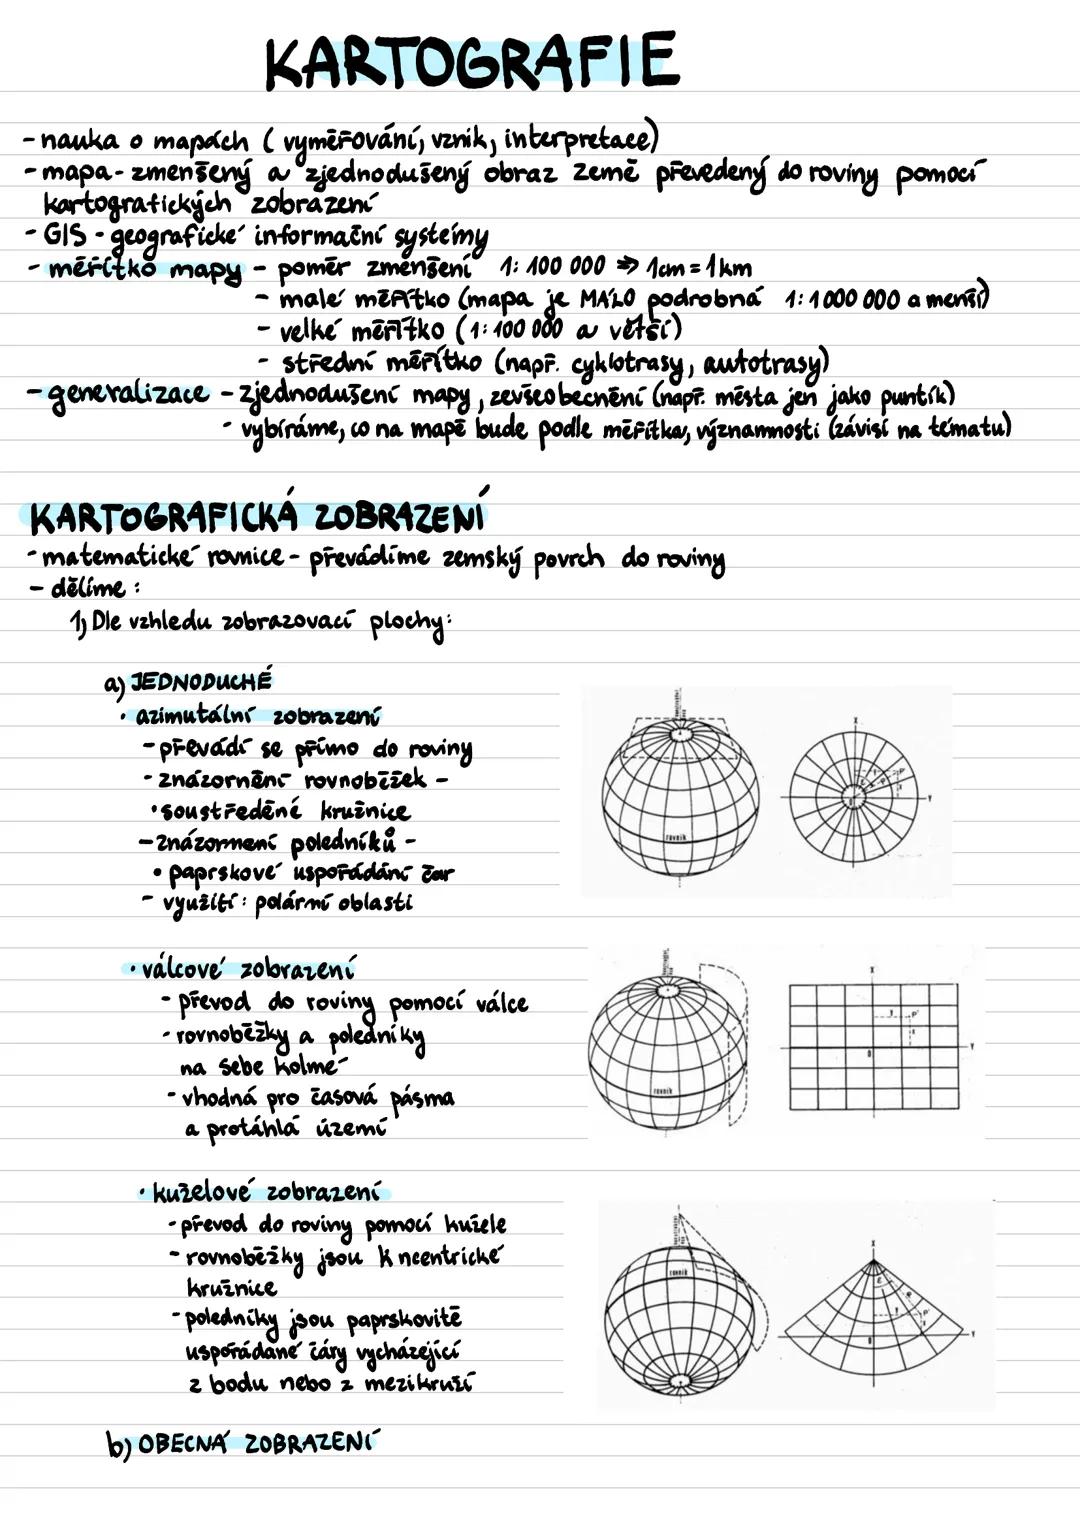 KARTOGRAFIE
- nauka o mapách ( vyměřování, vznik, interpretace)
- mapa - zmenšený a zjednodušený obraz Země převedený do roviny pomocí
kartografických zobrazení
- GIS - geografické informační systémy
- měřítko mapy - poměr zmenšení 1: 100 000 => 1cm = 1km
- malé měřítko (mapa je MÁLO podrobná 1: 1 000 000 a menší)
- velké měřítko (1: 100 000 a větší)
- střední měřítko (např. cyklotrasy, autotrasy)
- generalizace - zjednodušení mapy, zevšeobecnění (např. města jen jako puntík)
- vybíráme, co na mapě bude podle měřítka, významnosti (závisí na tématu)
KARTOGRAFICKÁ ZOBRAZENÍ
- matematické rovnice - převádíme zemský povrch do roviny
- dělíme :
1) Dle vzhledu zobrazovací plochy:
a) JEDNODUCHÉ
• azimutální zobrazení
- převádí se přímo do roviny
- znázornění rovnoběžek -
• soustředěné kružnice
- znázornění poledníků -
• paprskové uspořádání čar
- využití : polární oblasti
rovník
X
Y
• válcové zobrazení
- převod do roviny pomocí válce
- rovnoběžky a poledníky
na sebe kolmé
- vhodná pro časová pásma
a protáhlá území
rovník
X
Y
P'
0
• kuželové zobrazení
- převod do roviny pomocí kužele
- rovnoběžky jsou k ncentrické
kružnice
- poledníky jsou paprskovitě
uspořádané čáry vycházející
z bodu nebo z mezikruží
rovník
X
Y
P'
0
b) OBECNÁ ZOBRAZENÍ